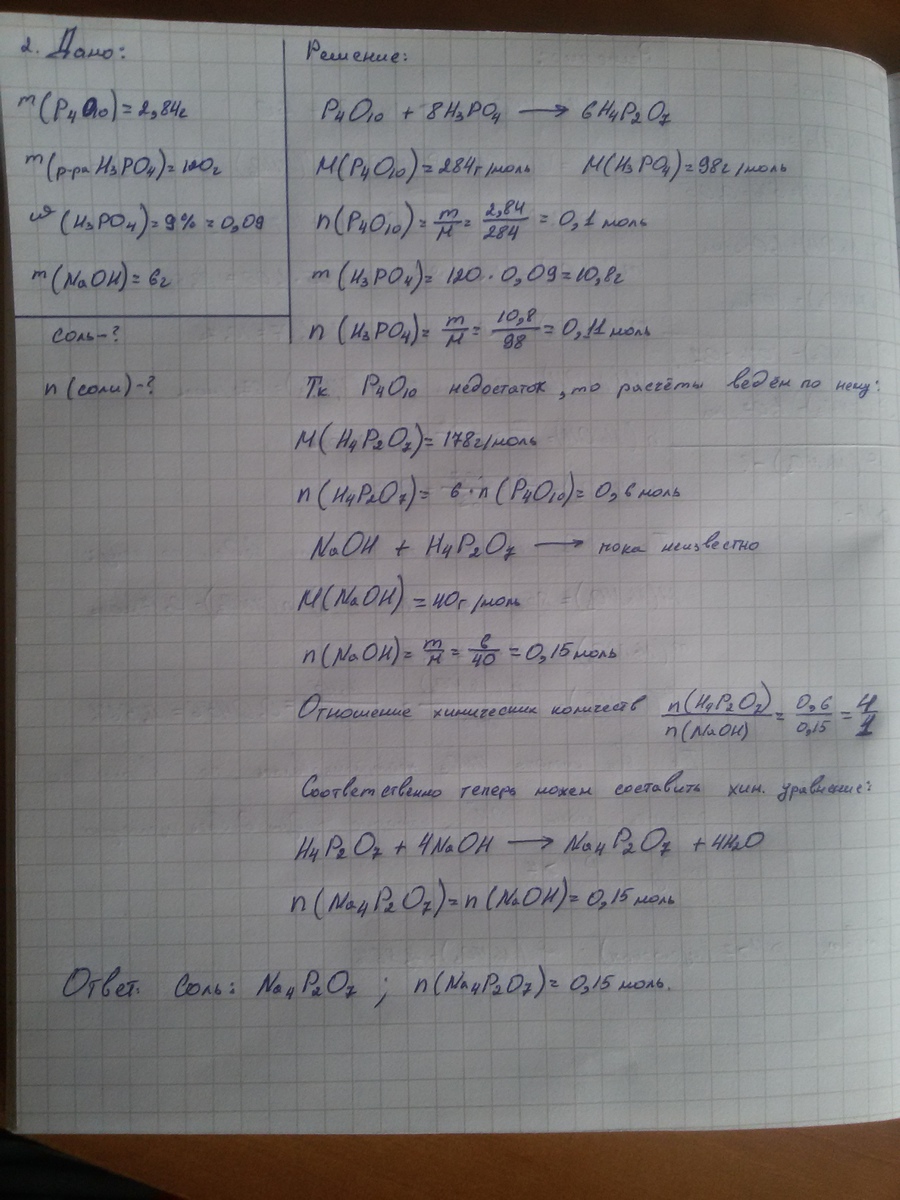 2. Дано:
m(P4O10)=2,84г
m(р-ра H3PO4)=120г
ω(H3PO4)=9%=0,09
m(NaOH)=6г
соль-?
n(соли)-?
Решение:
P4O10 + 8H3PO4 → 6H4P2O7
M(P4O10)=284г/моль M(H3PO4)=98г/моль
n(P4O10)= m/M = 2,84/284 = 0,1 моль
m(H3PO4)= 120 · 0,09=10,8г
n(H3PO4)= m/M = 10,8/98 = 0,11 моль
Т.к P4O10 недостаток, то расчёты ведём по нему:
M(H4P2O7)=178г/моль
n(H4P2O7)= 6·n(P4O10)=0,6 моль
NaOH + H4P2O7 → пока неизвестно
M(NaOH)=40г/моль
n(NaOH)= m/M = 6/40 =0,15 моль
Отношение химических количеств n(H4P2O7)/n(NaOH) = 0,6/0,15 = 4/1
Соответственно теперь можем составить хим. уравнение:
H4P2O7 + 4NaOH → Na4P2O7 + 4H2O
n(Na4P2O7)=n(NaOH)=0,15 моль
Ответ: Соль: Na4P2O7 ; n(Na4P2O7)= 0,15 моль.